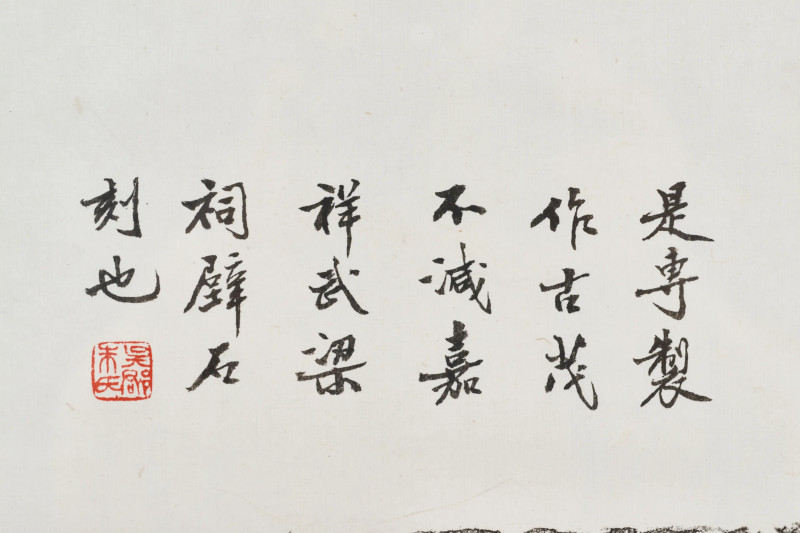 是専製
作古茂
不減嘉
祥武梁
祠壁石
刻也
吳郡朱氏